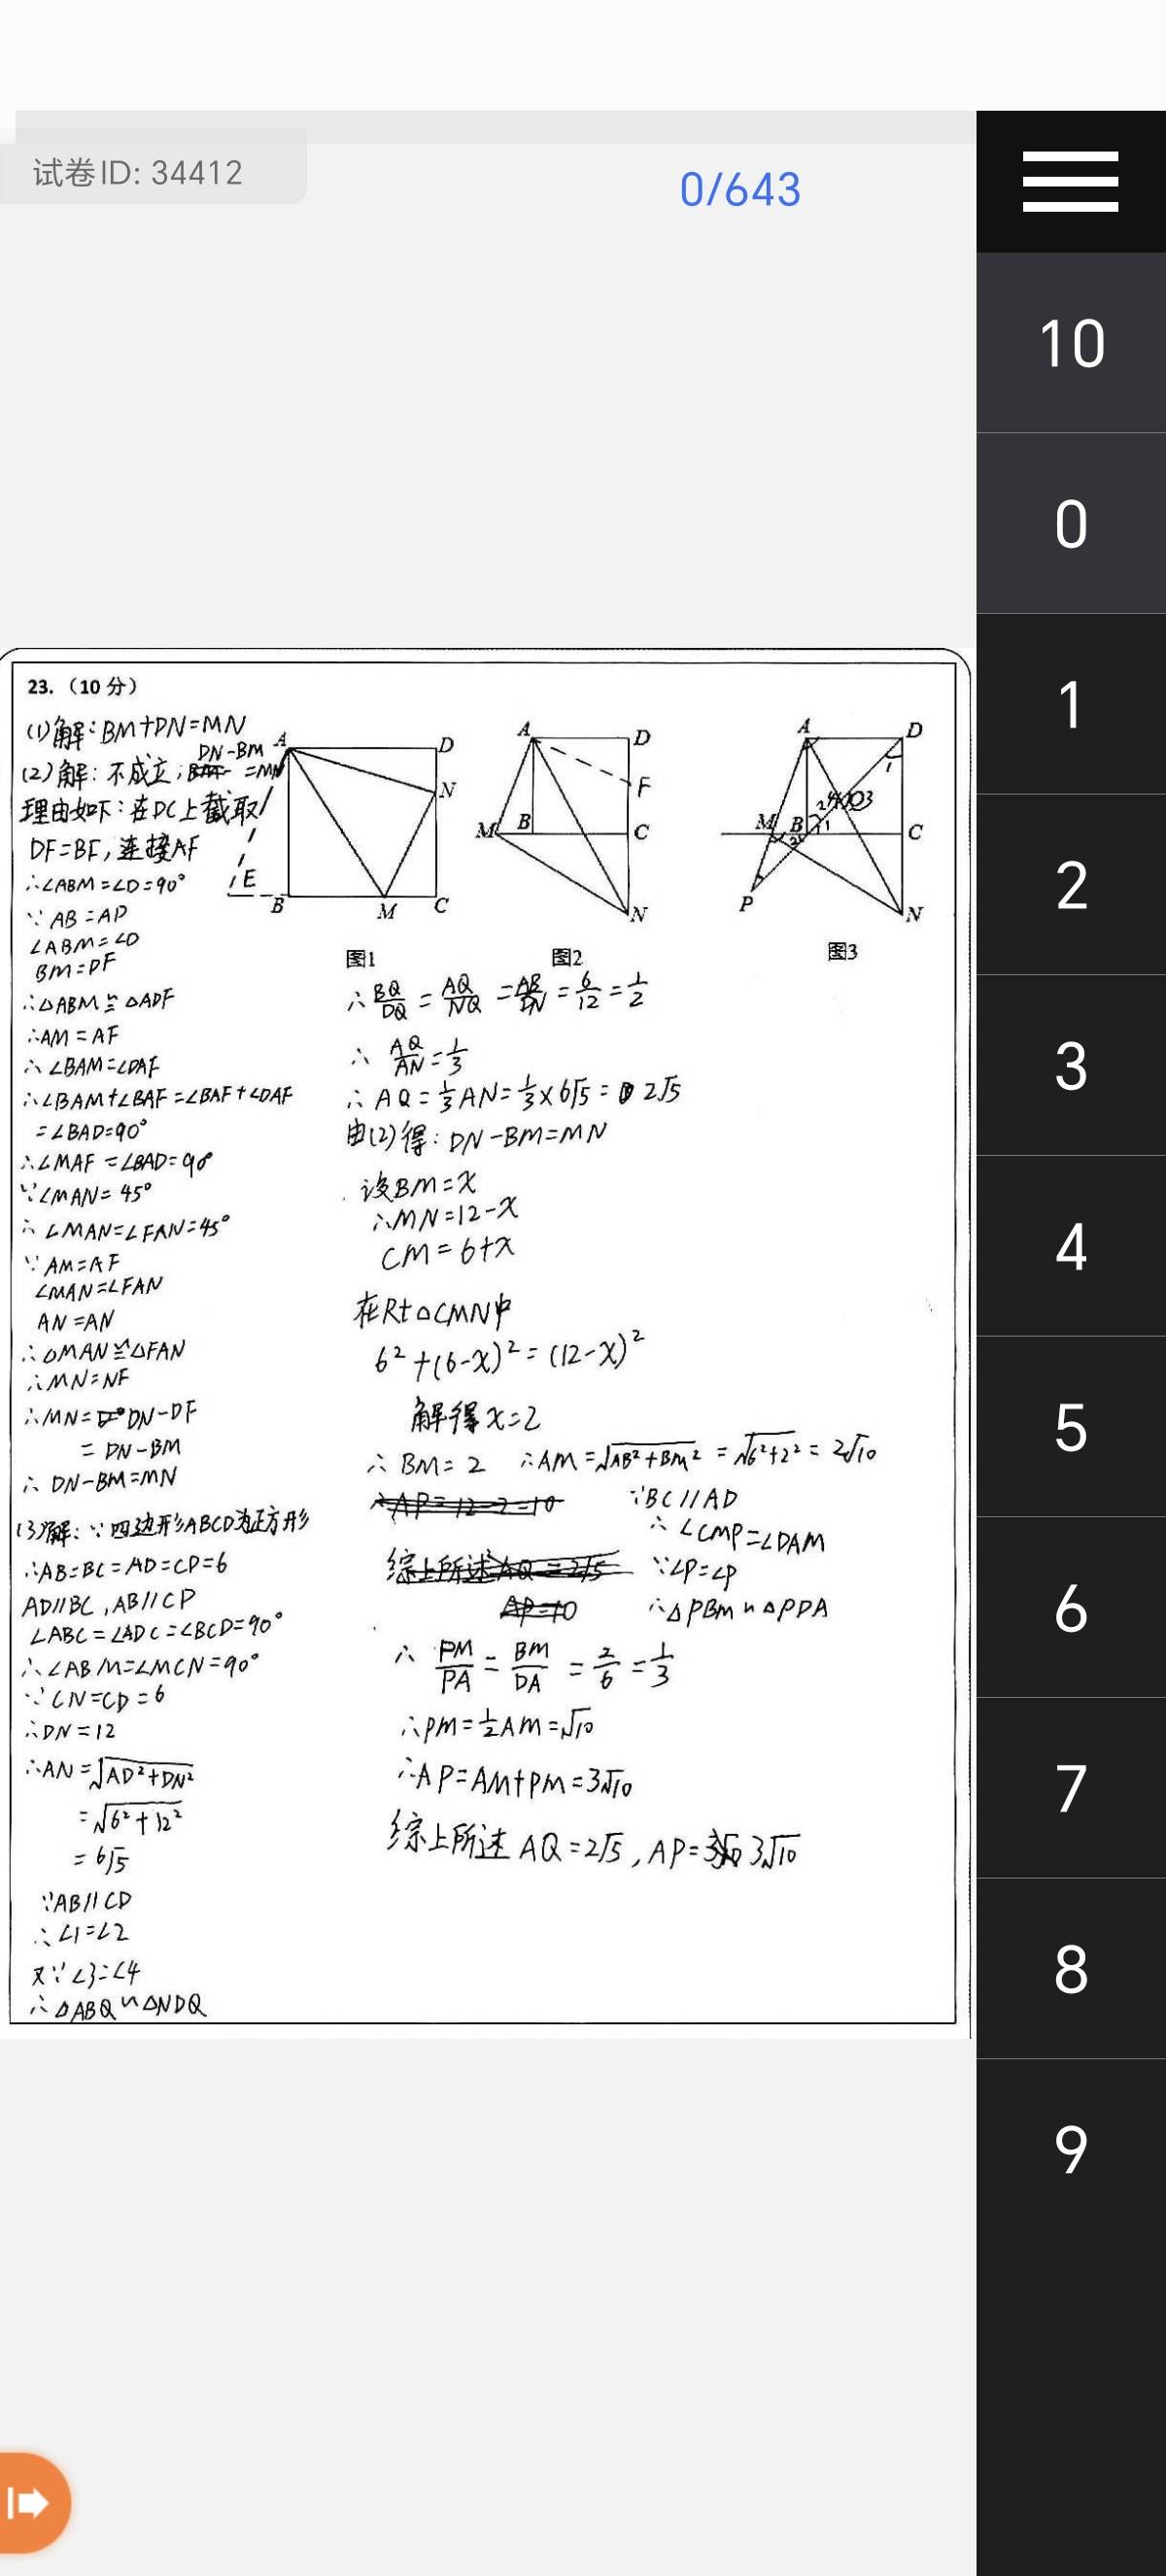 试卷ID: 34412
0/643
10
0
1
2
3
4
5
6
7
8
9
23.（10 分）
(1)解:BM+DN=MN
(2)解: 不成立; DN-BM=MN
理由如下: 在DC上截取
DF=BF, 连接AF
∴∠ABM=∠D=90°
∵ AB=AD
∠ABM=∠D
BM=DF
∴△ABM≌△ADF
∴AM=AF
∴ ∠BAM=∠DAF
∴∠BAM+∠BAF=∠BAF+∠DAF
=∠BAD=90°
∴∠MAF=∠BAD=90°
∵∠MAN=45°
∴ ∠MAN=∠FAN=45°
∵ AM=AF
∠MAN=∠FAN
AN=AN
∴△MAN≌△FAN
∴MN=NF
∴MN=DN-DF
= DN-BM
∴ DN-BM=MN
(3)解: ∵四边形ABCD为正方形
∴AB=BC=AD=CD=6
AD//BC, AB//CD
∠ABC=∠ADC=∠BCD=90°
∴∠ABM=∠MCN=90°
∵CN=CD=6
∴DN=12
∴AN=√AD²+DN²
=√6²+12²
=6√5
∵AB//CD
∴∠1=∠2
又∵∠3=∠4
∴△ABQ∽△NDQ
A
D
N
E
B
M
C
图1
A
D
F
M
B
C
N
图2
A
D
1
2
4
3
M
B
1
2
C
P
N
图3
∴ BQ/DQ = AQ/NQ = AB/DN = 6/12 = 1/2
∴ AQ/AN = 1/3
∴ AQ = 1/3 AN = 1/3 × 6√5 = 2√5
由(2)得: DN-BM=MN
设BM=x
∴MN=12-x
CM=6+x
在Rt△CMN中
6²+(6-x)²=(12-x)²
解得x=2
∴ BM=2 ∴AM=√AB²+BM² = √6²+2² = 2√10
∴AP=12-2=10
∵BC//AD
∴ ∠CMP=∠DAM
综上所述AQ=2√5
∵∠P=∠P
AP=10
∴△PBM∽△PDA
∴ PM/PA = BM/DA = 2/6 = 1/3
∴PM=1/2AM=√10
∴AP=AM+PM=3√10
综上所述 AQ=2√5, AP=3√10